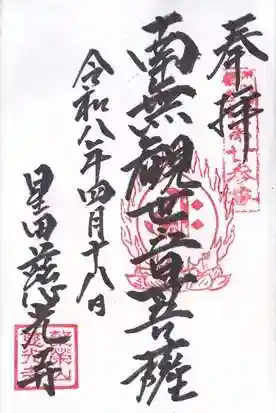 奉拝
南無観世音菩薩
令和八年四月十八日
星田慈光寺